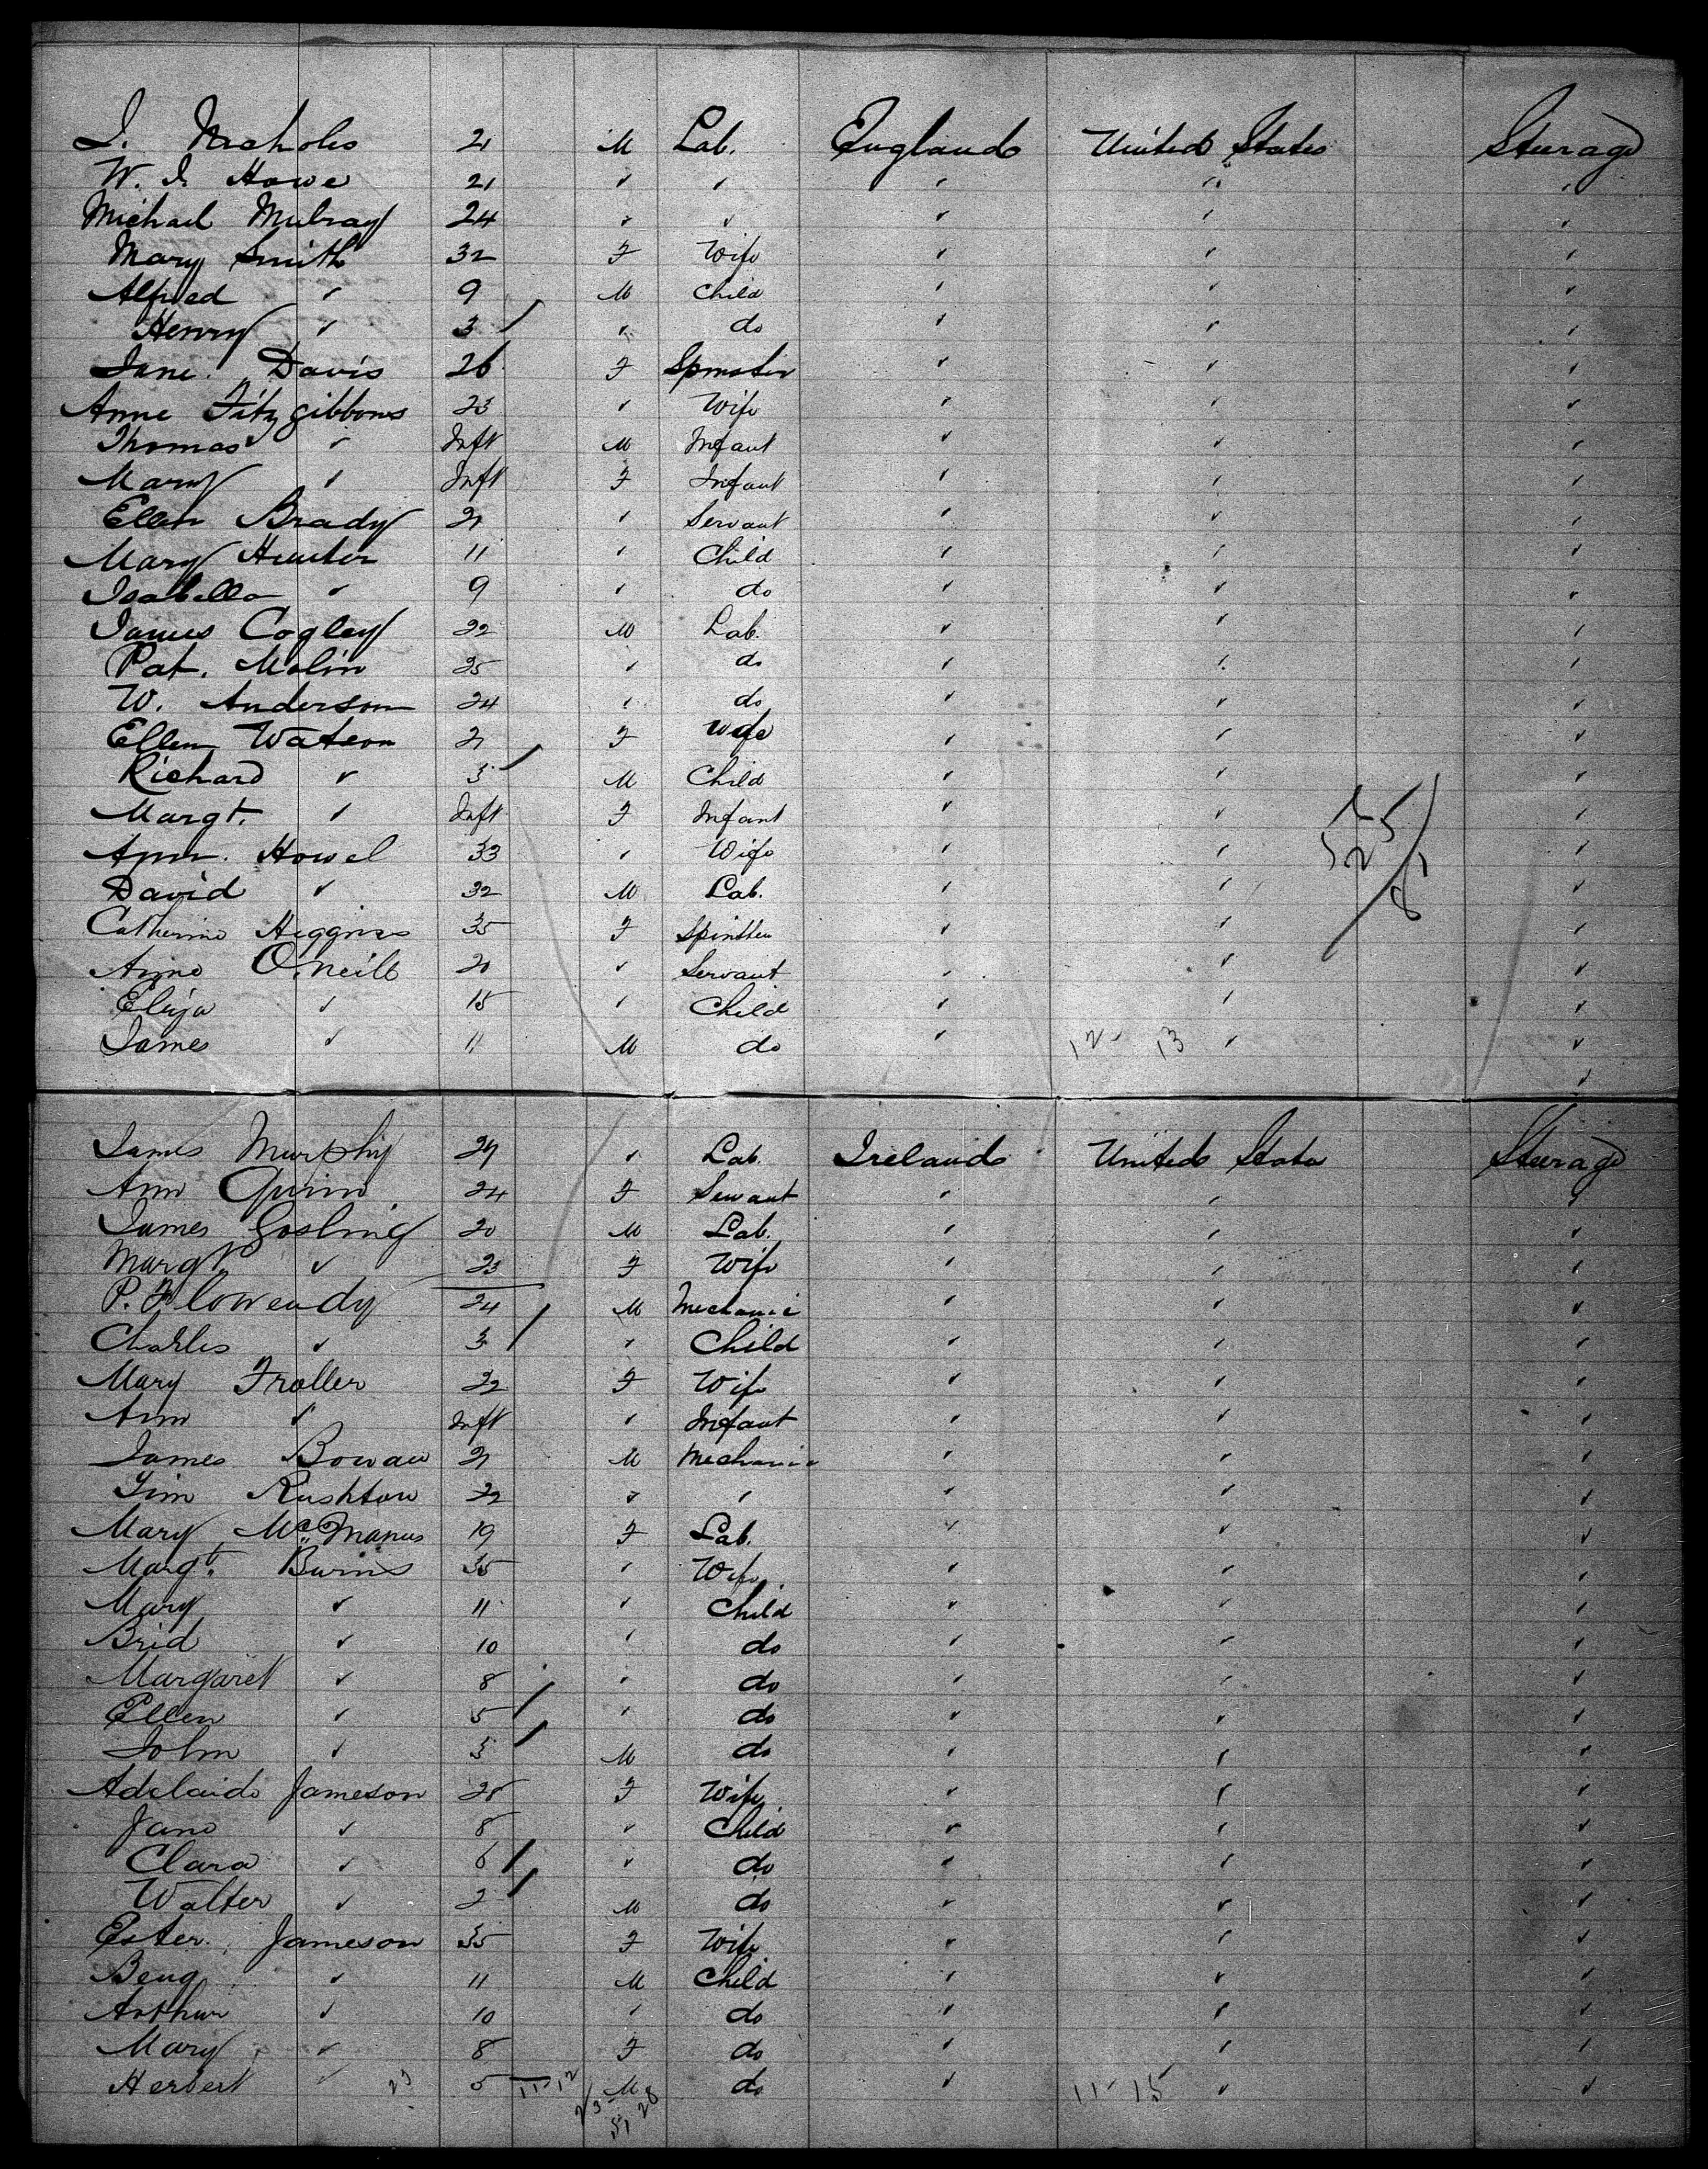 J. Nicholes 21 M Lab. England United States Sturage
W. J. Howe 21 " " " " "
Michael Mulray 24 " " " " "
Mary Smith 32 F Wife " " "
Alfred " 9 M Child " " "
Henry " 3 " do " " "
Jane. Davis 26 F Spinster " " "
Anne Fitzgibbons 23 " Wife " " "
Thomas " Inft M Infant " " "
Mary " Inft F Infant " " "
Ellen Brady 21 " Servant " " "
Mary Hunter 11 " Child " " "
Isabella " 9 " do " " "
James Cogley 22 M Lab. " " "
Pat. Molin 25 " do " " "
W. Anderson 24 " do " " "
Ellen Watson 21 F Wife " " "
Richard " 3 M Child " " "
Margt. " Inft F Infant " " "
Ann. Howel 33 " Wife " " "
David " 32 M Lab. " " "
Catherine Higgins 35 F Spinster " " "
Anne O'Neill 20 " Servant " " "
Eliza " 15 " Child " " "
James " 11 M do " 12 - 13 " "
"
James Murphy 29 " Lab. Ireland United States Sturage
Ann Quinn 24 F Servant " " "
James Gosling 20 M Lab. " " "
Margt. " 23 F Wife " " "
P. 24 M Mechanic " " "
Charles " 3 " Child " " "
Mary Froller 22 F Wife " " "
Ann " Inft " Infant " " "
James Bowan 21 M Mechanic " " "
Tim Rushton 22 " " " " "
Mary McManus 19 F Lab. " " "
Margt. Burns 35 " Wife " " "
Mary " 11 " Child " " "
Brid " 10 " do " " "
Margaret " 8 " do " " "
Ellen " 5 " do " " "
John " 3 M do " " "
Adelaide Jameson 28 F Wife " " "
Jane " 8 " Child " " "
Clara " 6 " do " " "
Walter " 2 M do " " "
Ester. Jameson 35 F Wife " " "
Benj " 11 M Child " " "
Arthur " 10 " do " " "
Mary " 8 F do " " "
Herbert " 23 5 11-12 M do " 11 - 15 " "